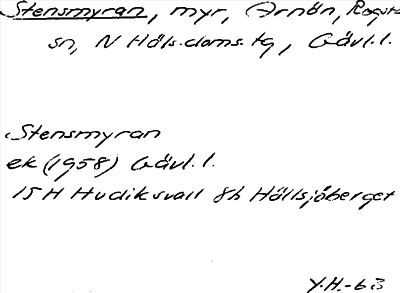 Stensmyran, myr, Arnön, Rogsta
sn, N Häls.doms.tg, Gävl.l.
Stensmyran
ek (1958) Gävl.l.
15H Hudiksvall 8h Hällsjöberget
Y.H.-63